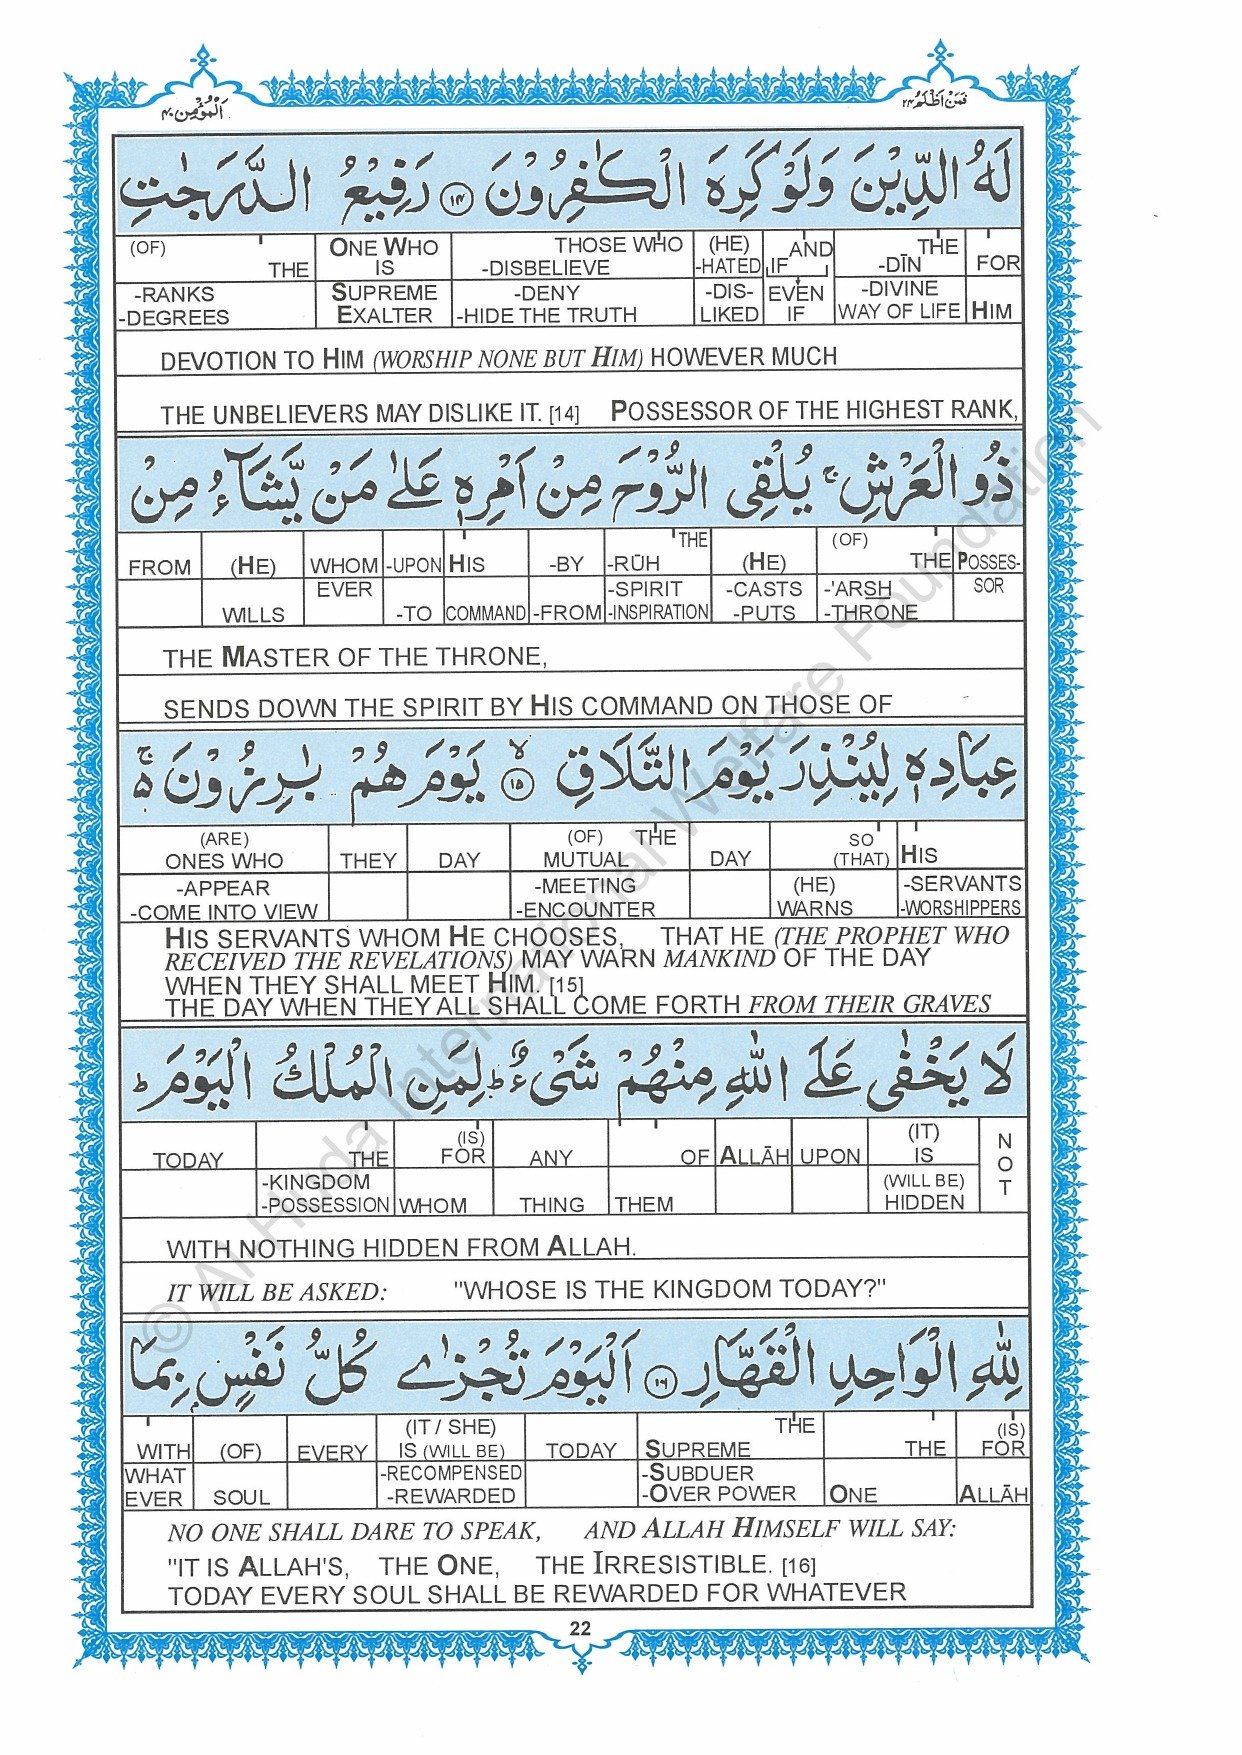 اَلْمُؤْمِن ۴۰ فَمَنْ اَظْلَمُ ۲۴
لَهُ الدِّيْنَ وَلَوْ كَرِهَ الْكٰفِرُوْنَ ۝۱۴ رَفِيْعُ الدَّرَجٰتِ
(OF) THE THOSE WHO (HE) AND THE FOR
ONE WHO IS -DISBELIEVE -HATED IF -DĪN
-RANKS SUPREME -DENY -DIS- EVEN -DIVINE
-DEGREES EXALTER -HIDE THE TRUTH LIKED IF WAY OF LIFE HIM
DEVOTION TO HIM (WORSHIP NONE BUT HIM) HOWEVER MUCH
THE UNBELIEVERS MAY DISLIKE IT. [14] POSSESSOR OF THE HIGHEST RANK,
ذُو الْعَرْشِ ۚ يُلْقِى الرُّوْحَ مِنْ اَمْرِهٖ عَلٰى مَنْ يَّشَآءُ مِنْ
THE (OF)
FROM (HE) WHOM -UPON HIS -BY -RŪH (HE) THE POSSES-
EVER -SPIRIT -CASTS -'ARSH SOR
WILLS -TO COMMAND -FROM -INSPIRATION -PUTS -THRONE
THE MASTER OF THE THRONE,
SENDS DOWN THE SPIRIT BY HIS COMMAND ON THOSE OF
عِبَادِهٖ لِيُنْذِرَ يَوْمَ التَّلَاقِ ۝۱۵ۙ يَوْمَ هُمْ بٰرِزُوْنَ ۚ۬
(ARE) (OF) THE SO
ONES WHO THEY DAY MUTUAL DAY (THAT) HIS
-APPEAR -MEETING (HE) -SERVANTS
-COME INTO VIEW -ENCOUNTER WARNS -WORSHIPPERS
HIS SERVANTS WHOM HE CHOOSES, THAT HE (THE PROPHET WHO
RECEIVED THE REVELATIONS) MAY WARN MANKIND OF THE DAY
WHEN THEY SHALL MEET HIM. [15]
THE DAY WHEN THEY ALL SHALL COME FORTH FROM THEIR GRAVES
لَا يَخْفٰى عَلَى اللّٰهِ مِنْهُمْ شَىْءٌ ؕ لِمَنِ الْمُلْكُ الْيَوْمَ ؕ
(IS) (IT) NOT
TODAY THE FOR ANY OF ALLĀH UPON IS
-KINGDOM (WILL BE)
-POSSESSION WHOM THING THEM HIDDEN
WITH NOTHING HIDDEN FROM ALLAH.
IT WILL BE ASKED: "WHOSE IS THE KINGDOM TODAY?"
لِلّٰهِ الْوَاحِدِ الْقَهَّارِ ۝۱۶ اَلْيَوْمَ تُجْزٰى كُلُّ نَفْسٍۭ بِمَا
(IT / SHE) THE (IS)
WITH (OF) EVERY IS (WILL BE) TODAY SUPREME THE FOR
WHAT -RECOMPENSED -SUBDUER
EVER SOUL -REWARDED -OVER POWER ONE ALLĀH
NO ONE SHALL DARE TO SPEAK, AND ALLAH HIMSELF WILL SAY:
"IT IS ALLAH'S, THE ONE, THE IRRESISTIBLE. [16]
TODAY EVERY SOUL SHALL BE REWARDED FOR WHATEVER
22
© Al Huda International Welfare Foundation